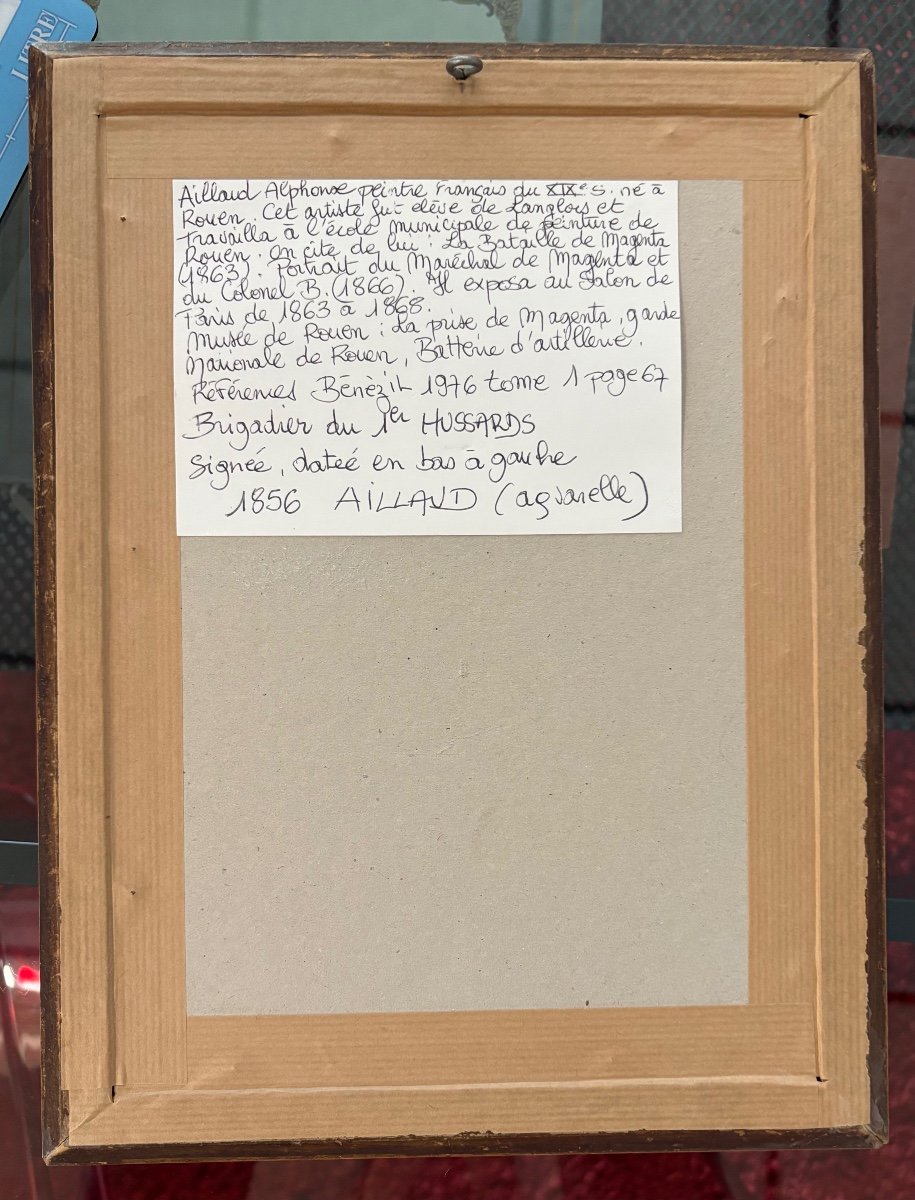 LITRE
Aillaud Alphonse peintre Français du XIXe s. né à
Rouen. Cet artiste fut elève de Langlois et
travailla à l'école municipale de peinture de
Rouen. on cite de lui : La Bataille de Magenta
(1863). Portrait du Maréchal de Magenta et
du Colonel B. (1866). Il exposa au Salon de
Paris de 1863 à 1868.
Musée de Rouen : La prise de Magenta, garde
Nationale de Rouen, Batterie d'artillerie.
Références Bénèzit 1976 tome 1 page 67
Brigadier du 1er HUSSARDS
Signée, dateé en bas à gauche
1856 AILLAUD (aquarelle)